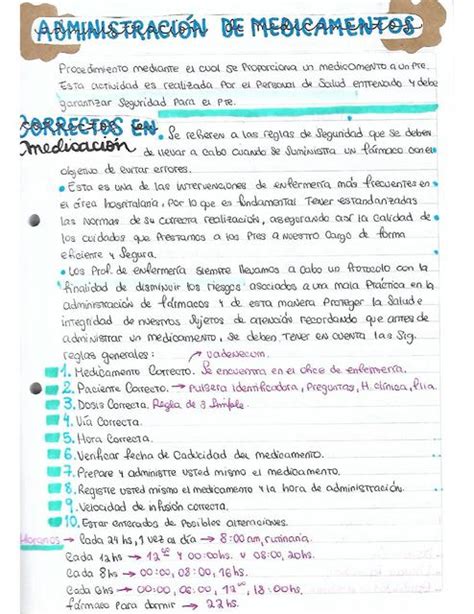 ADMINISTRACIÓN DE MEDICAMENTOS
Procedimiento mediante el cual se proporciona un medicamento a un Pte.
Esta actividad es realizada por el Personal de Salud entrenado y debe
garantizar seguridad para el Pte.
CORRECTOS EN
medicación
Se refieren a las reglas de seguridad que se deben
de llevar a cabo cuando se suministra un fármaco con el
objetivo de evitar errores.
• Esta es una de las intervenciones de enfermería más frecuentes en
el área hospitalaria, por lo que es fundamental tener estandarizadas
las normas de su correcta realización, asegurando así la calidad de
los cuidados que prestamos a los Ptes a nuestro cargo de forma
eficiente y segura.
• Los Prof. de enfermería siempre llevamos a cabo un Protocolo con la
finalidad de disminuir los riesgos asociados a una mala práctica en la
administración de fármacos y de esta manera proteger la salud e
integridad de nuestros sujetos de atención recordando que antes de
administrar un medicamento, se deben tener en cuenta las sig.
reglas generales:
vademecum.
1. Medicamento Correcto. Se encuentra en el office de enfermería.
2. Paciente Correcto. → Pulsera identificadora, Preguntas, H. clínica, flia.
3. Dosis Correcta. Regla de 3 simple.
4. Vía Correcta.
5. Hora Correcta.
6. Verificar fecha de caducidad del medicamento.
7. Prepare y administre usted mismo el medicamento.
8. Registre usted mismo el medicamento y la hora de administración.
9. Velocidad de infusión correcta.
10. Estar enterados de posibles alteraciones.
Horarios → Cada 24 hs, 1 vez al día → 8:00 am, ruminaria.
Cada 12hs → 12:00 y 00:00hs. o 08:00, 20hs.
Cada 8hs → 00:00, 08:00, 16hs.
Cada 6hs → 00:00, 06:00, 12:00, 18:00hs.
fármaco para dormir → 22hs.